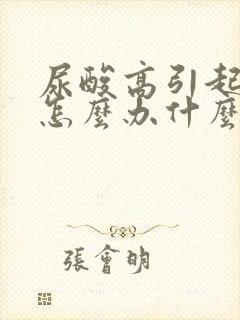 尿酸高引起
怎麼办什麼
張會明